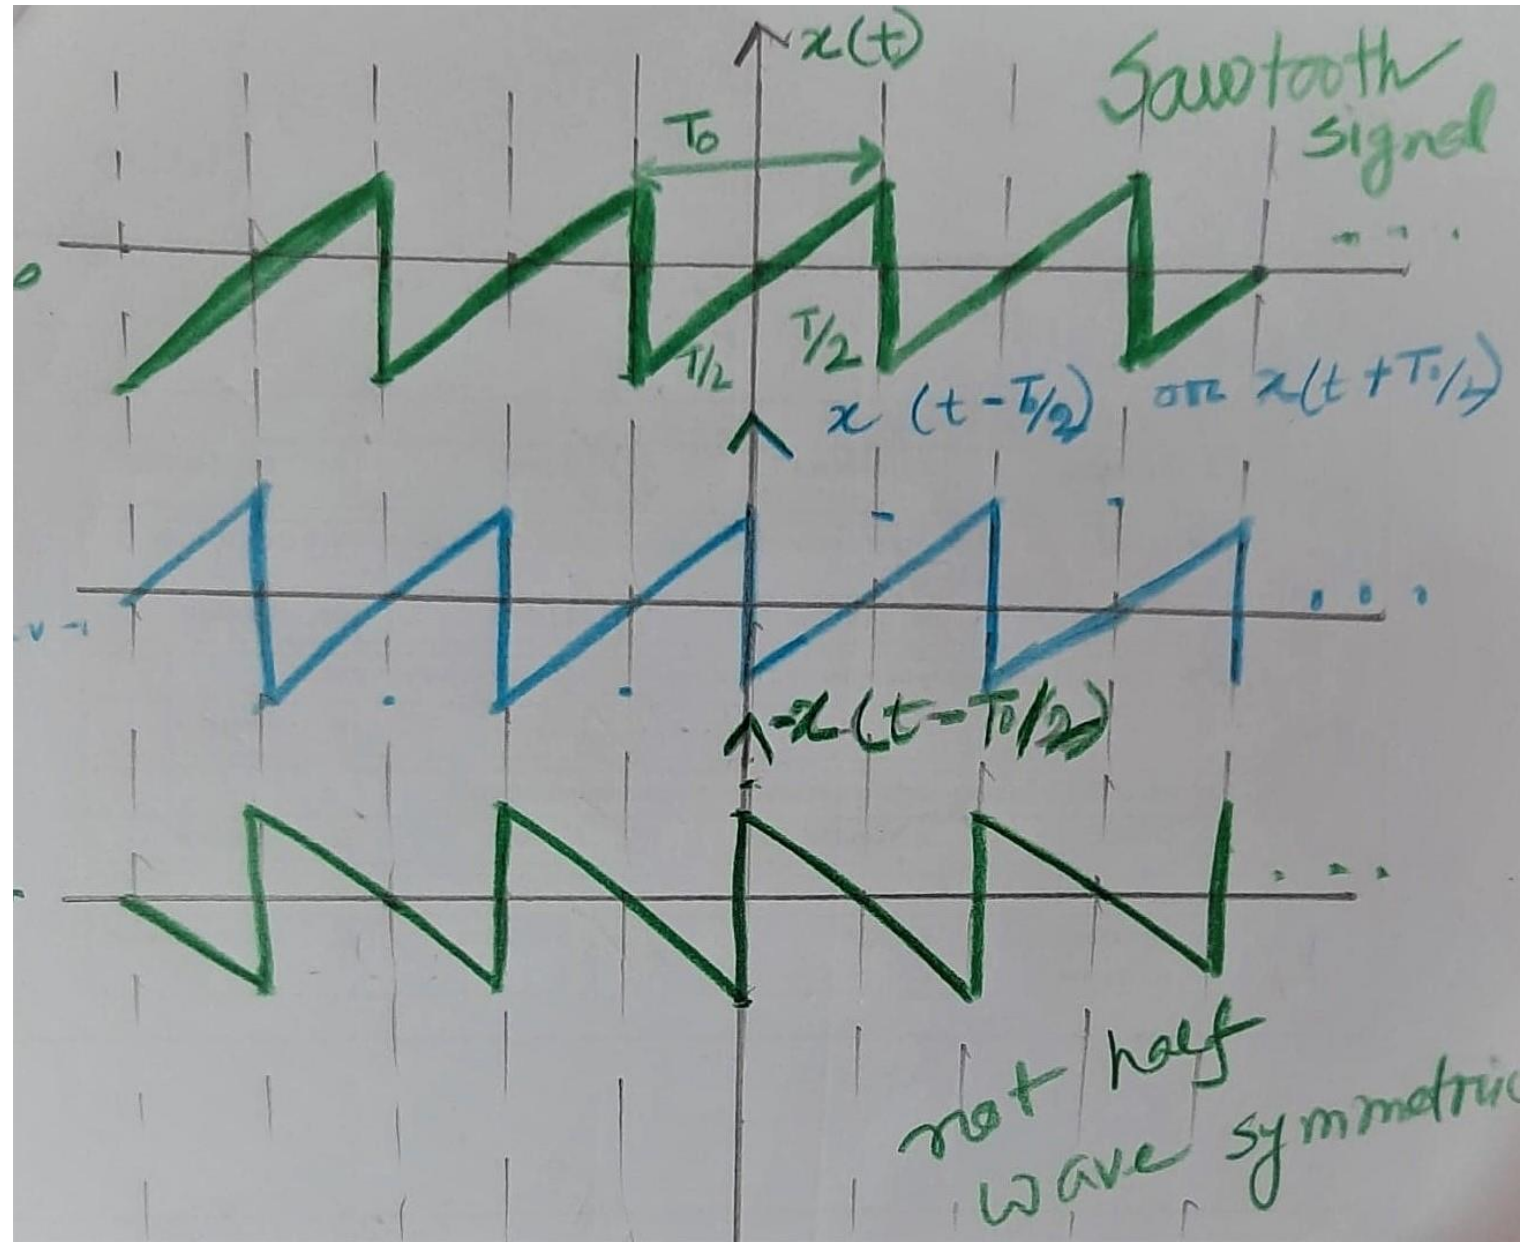 x(t)
Sawtooth
signal
T₀
T/2
T/2
x (t - T₀/2) or x(t + T₀/2)
-x (t - T₀/2)
not half
wave symmetric